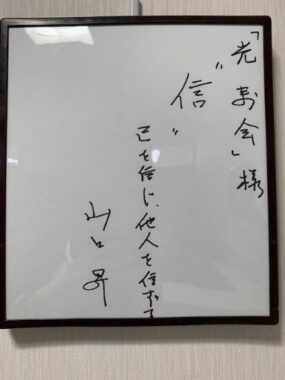 「光寿会」様
"信"
己を信じ、他人を信ずる
山口昇